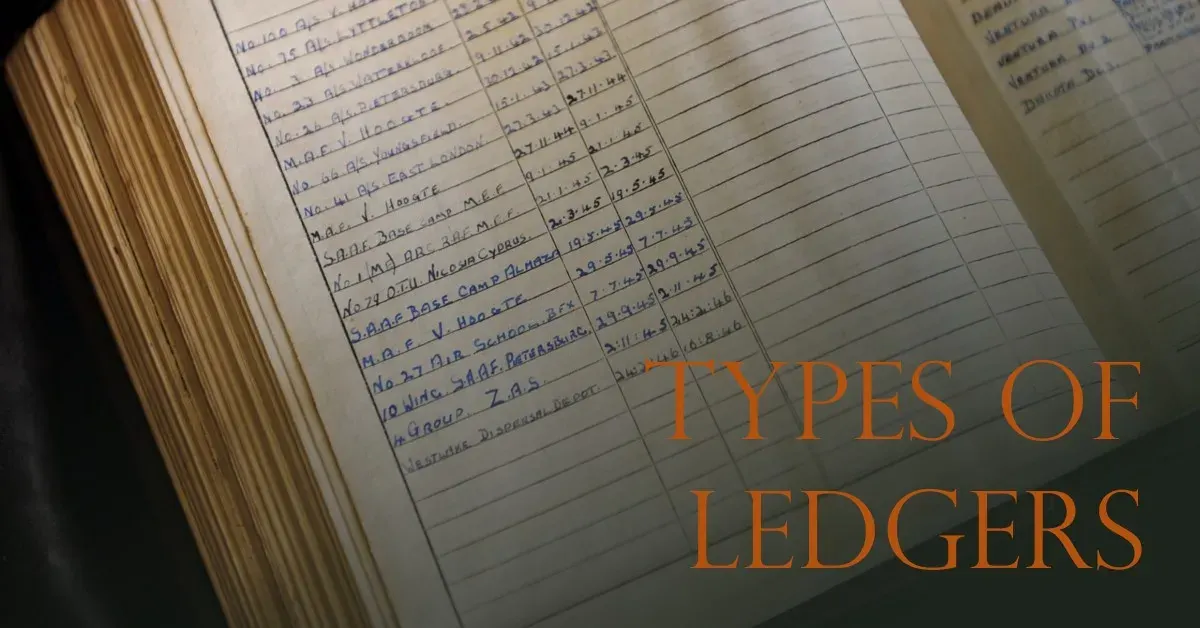 No. 75 A/S LYTTLETON
No. 3 A/S WONDERBOOM
No. 23 A/S WATERKLOOF 2.5.42
No. 26 A/S PIETERSBURG. 9.11.42 30.12.42
M.A.F. V. HOOGTE. 30.12.42 15.1.43
No. 66 A/S YOUNGSFIELD. 15.1.43 27.3.43
No. 41 A/S. EAST LONDON 27.3.43 27.11.44
M.A.F. V. HOOGTE 27.11.44 9.1.45
S.A.A.F. BASE CAMP M.E.F. 9.1.45 21.1.45
No. 1 (ME) A.R.C. R.A.F. M.E.F. 21.1.45 2.3.45
No 79 O.T.U. NICOSIA CYPRUS. 2.3.45 19.5.45
S.A.A.F. BASE CAMP ALMAZA 19.5.45 29.5.45
M.A.F. V. HOOGTE 29.5.45 7.7.45
No 27 AIR SCHOOL. BFX 7.7.45 29.9.45
10 WING. S.A.A.F. PETERSBURG. 29.9.45 2.11.45
4 GROUP. Z.A.S. 2:11:45 24:2:46
WESTLAKE DISPERSAL DEPOT. 24:2:46 10:8:46
VENTURA
VENTURA
DAKOTA
TYPES OF
LEDGERS